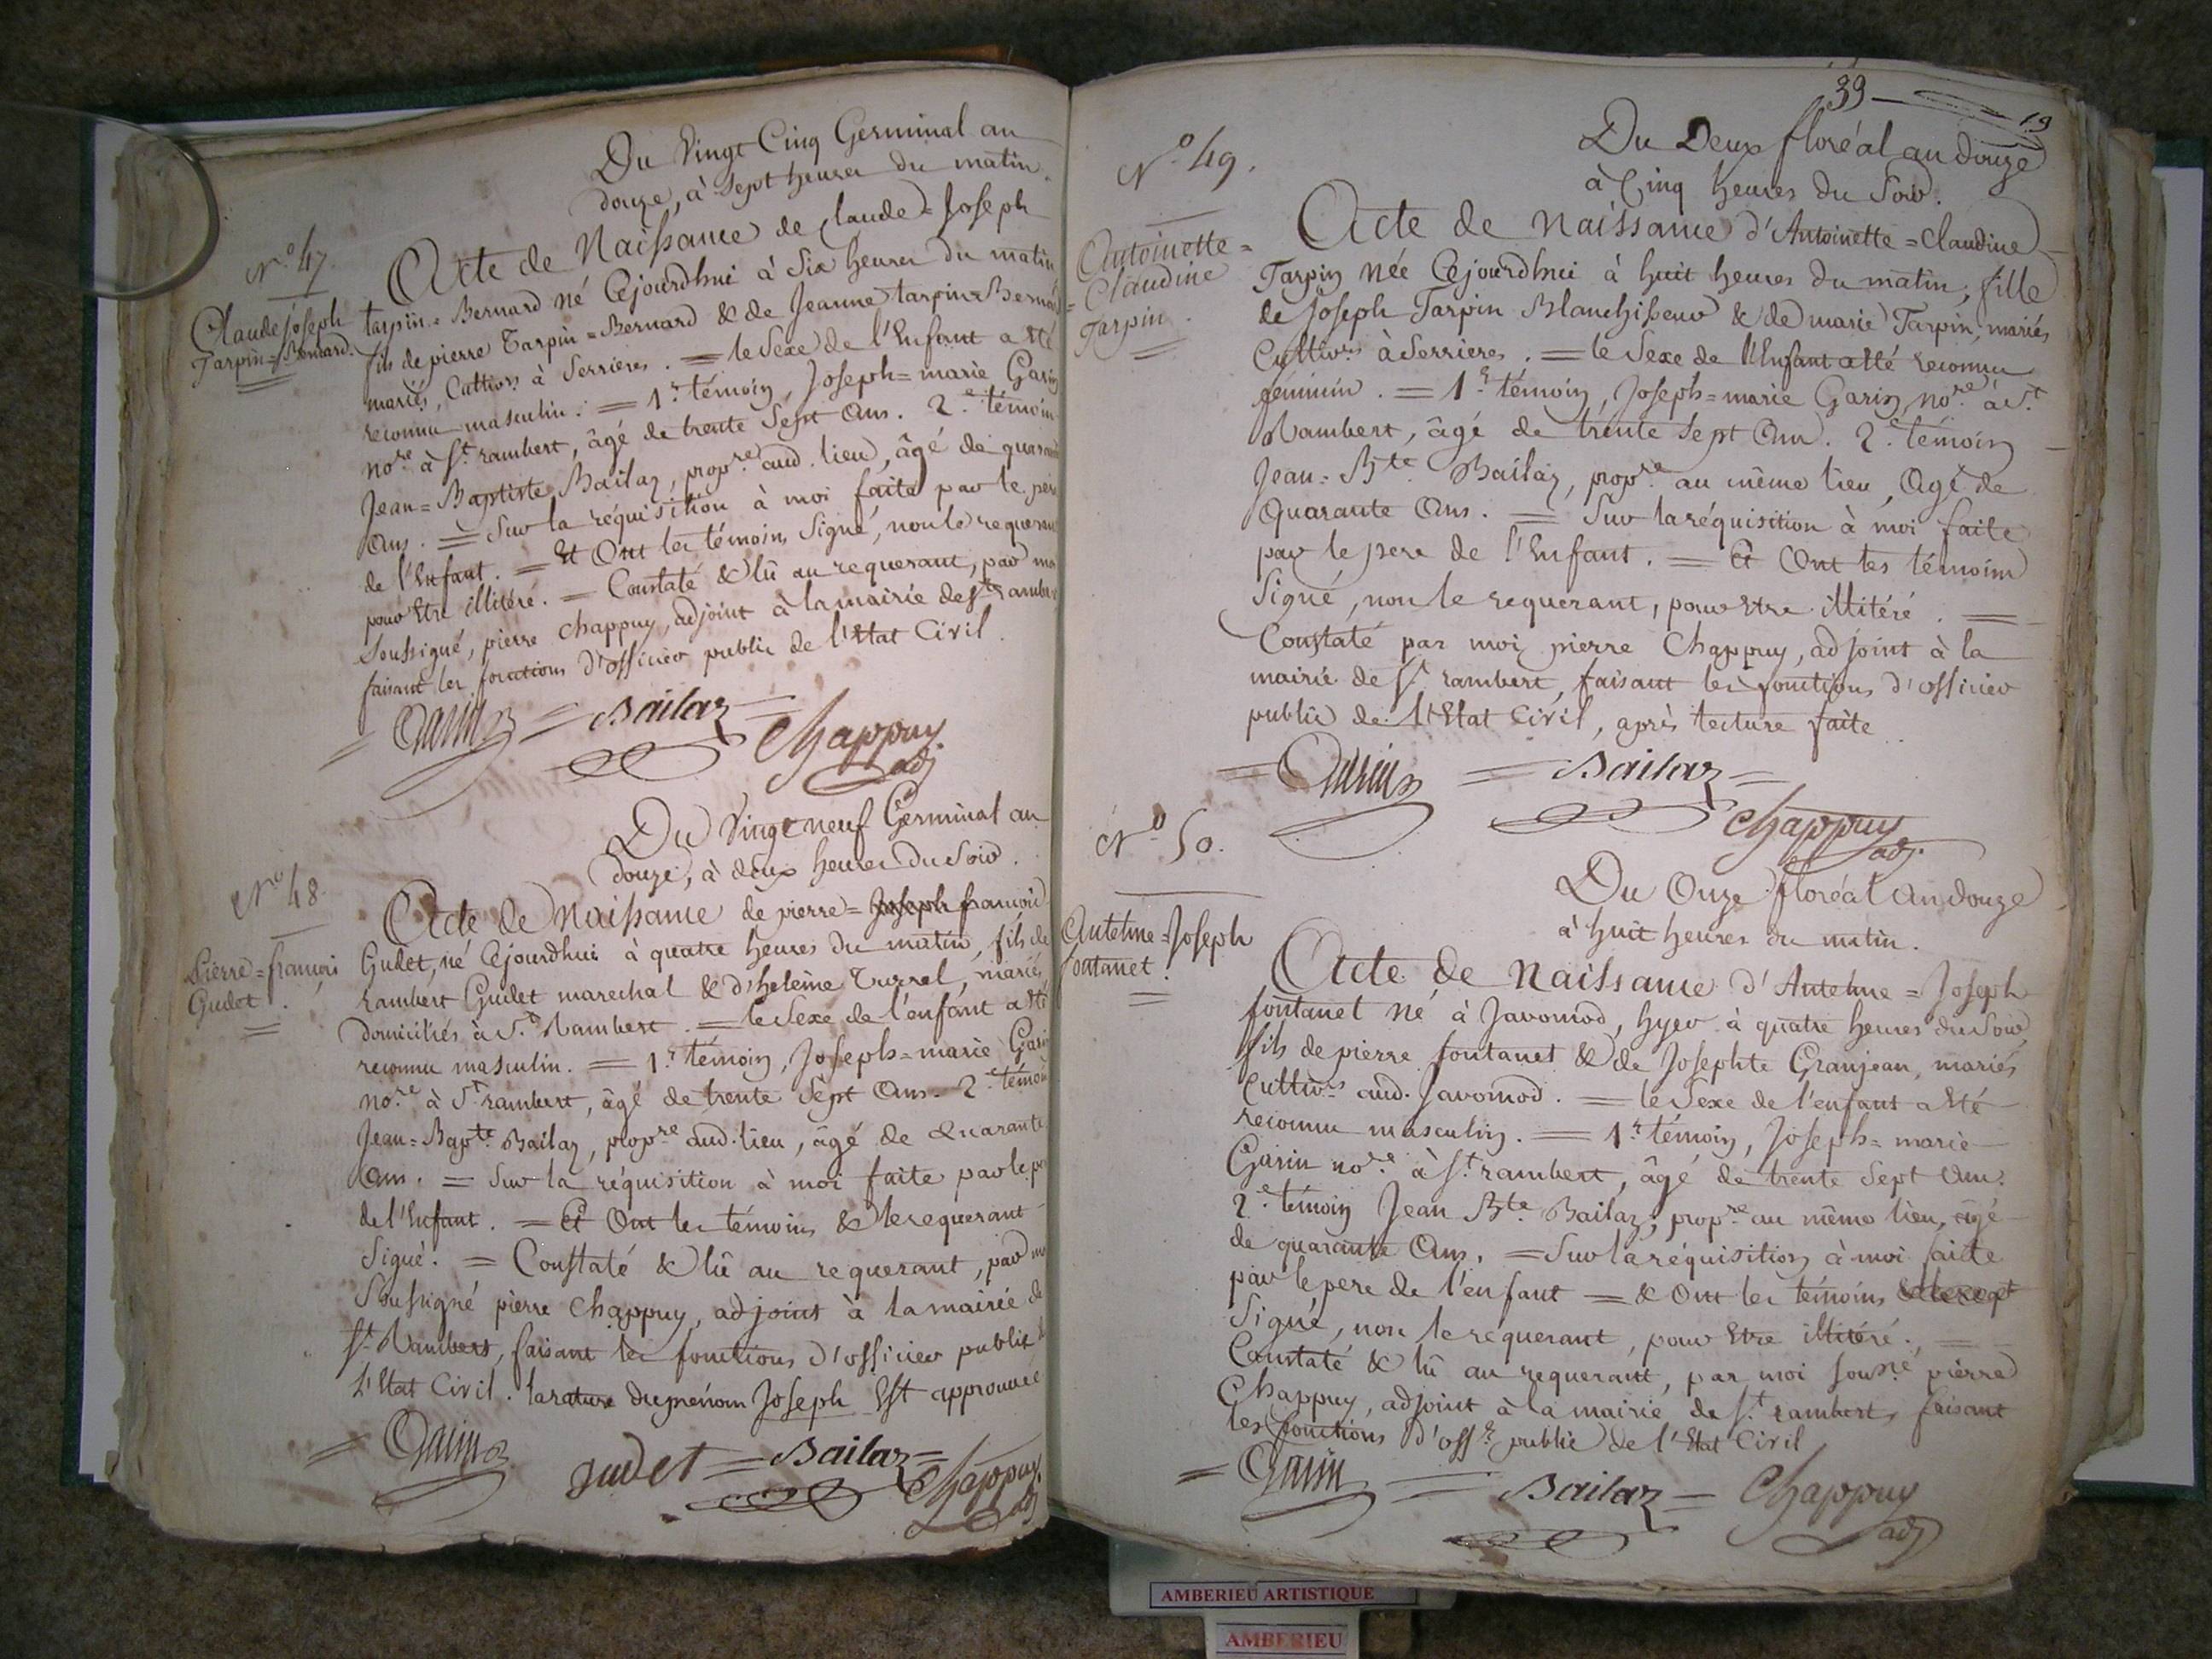 Du Vingt Cinq Germinal an
douze, à Sept heures du matin.
N.o 47.
Claude Joseph
Tarpin=Bernard.
Acte de Naissance de Claude=Joseph
tarpin=Bernard né Cejourdhui à Six heures du matin
fils de pierre Tarpin=Bernard & de Jeanne tarpin=Bernard
mariés, Cultivrs à Serrieres. = le Sexe de l'Enfant a Eté
reconnu masculin. = 1.r témoin, Joseph=marie Garin
no.re à St. rambert, âgé de trente Sept Ans. 2.e témoin
Jean=Baptiste Bailaz, propre aud. lieu, âgé de quarante
Ans. = Sur la réquisition à moi faite par le père
de l'Enfant. = Et Ont les témoins Signé, non le requerant
pour Etre illitéré. = Constaté & lû au requerant, par moi
Soussigné, pierre Chappuy, adjoint à la mairie de St. rambert
faisant les fonctions d'officier public de l'Etat Civil.
= Garin = Bailaz =
Chappuy
adj
Du Vingt neuf Germinal an
douze, à deux heures du Soir.
N.o 48.
Pierre=françois
Gudet.
Acte de Naissance de pierre= Joseph françois
Gudet, né Cejourdhui à quatre heures du matin, fils de
rambert Gudet marechal & d'heleine , mariés
domiciliés à St. Rambert. = le Sexe de l'enfant a Eté
reconnu masculin. = 1.r témoin, Joseph=marie Garin
no.re à St. rambert, âgé de trente Sept Ans. 2.e témoin
Jean=Bapte. Bailaz, propre aud. lieu, âgé de Quarante
Ans. = Sur la réquisition à moi faite par le père
de l'Enfant. = Et Ont les témoins & le requerant
Signé. = Constaté & lû au requerant, par moi
Soussigné pierre Chappuy, adjoint à la mairie de
St. Rambert, faisant les fonctions d'officier public de
l'Etat Civil. la rature du prénom Joseph Est approuvée
= Garin
Judet = Bailaz =
Chappuy
adj
39
19
Du Deux floréal an douze
à Cinq heures du Soir.
N.o 49.
Antoinette=
=Claudine
Tarpin.
Acte de Naissance d'Antoinette=Claudine
Tarpin Née Cejourdhui à huit heures du matin, fille
de Joseph Tarpin Blanchisseur & de marie Tarpin, mariés
Cultivrs à Serrieres. = le Sexe de l'Enfant a Eté reconnu
féminin. = 1.r témoin, Joseph=marie Garin, no.re à St.
Rambert, âgé de trente Sept Ans. 2.e témoin
Jean=Bte. Bailaz, propre au même lieu, Agé de
Quarante Ans. = Sur la réquisition à moi faite
par le pere de l'Enfant. = Et Ont les témoins
Signé, non le requerant, pour Etre illitéré. =
Constaté par moi pierre Chappuy, adjoint à la
mairie de St. rambert, faisant les fonctions d'officier
public de l'Etat Civil, après lecture faite.
= Garin = Bailaz =
Chappuy
adj.
N.o 50.
Du Onze floréal an douze
à huit heures du matin.
Antelme=Joseph
fontanet.
Acte de Naissance d'Antelme=Joseph
fontanet né à Javornod, hyer à quatre heures du Soir
fils de pierre fontanet & de Josephte Granjean, mariés
Cultivrs aud. Javornod. = le Sexe de l'enfant a Eté
reconnu masculin. = 1.r témoin, Joseph=marie
Garin no.re à St. rambert, âgé de trente Sept Ans.
2.e témoin Jean Bte. Bailaz, propre au même lieu, âgé
de quarante Ans. = Sur la réquisition à moi faite
par le pere de l'enfant = & Ont les témoins & le reqt
Signé, non le requerant, pour Etre illitéré. =
Constaté & lû au requerant, par moi Sousné pierre
Chappuy, adjoint à la mairie de St. rambert, faisant
les fonctions d'offr. public de l'Etat Civil
= Garin = Bailaz = Chappuy
adj
AMBERIEU ARTISTIQUE
AMBERIEU